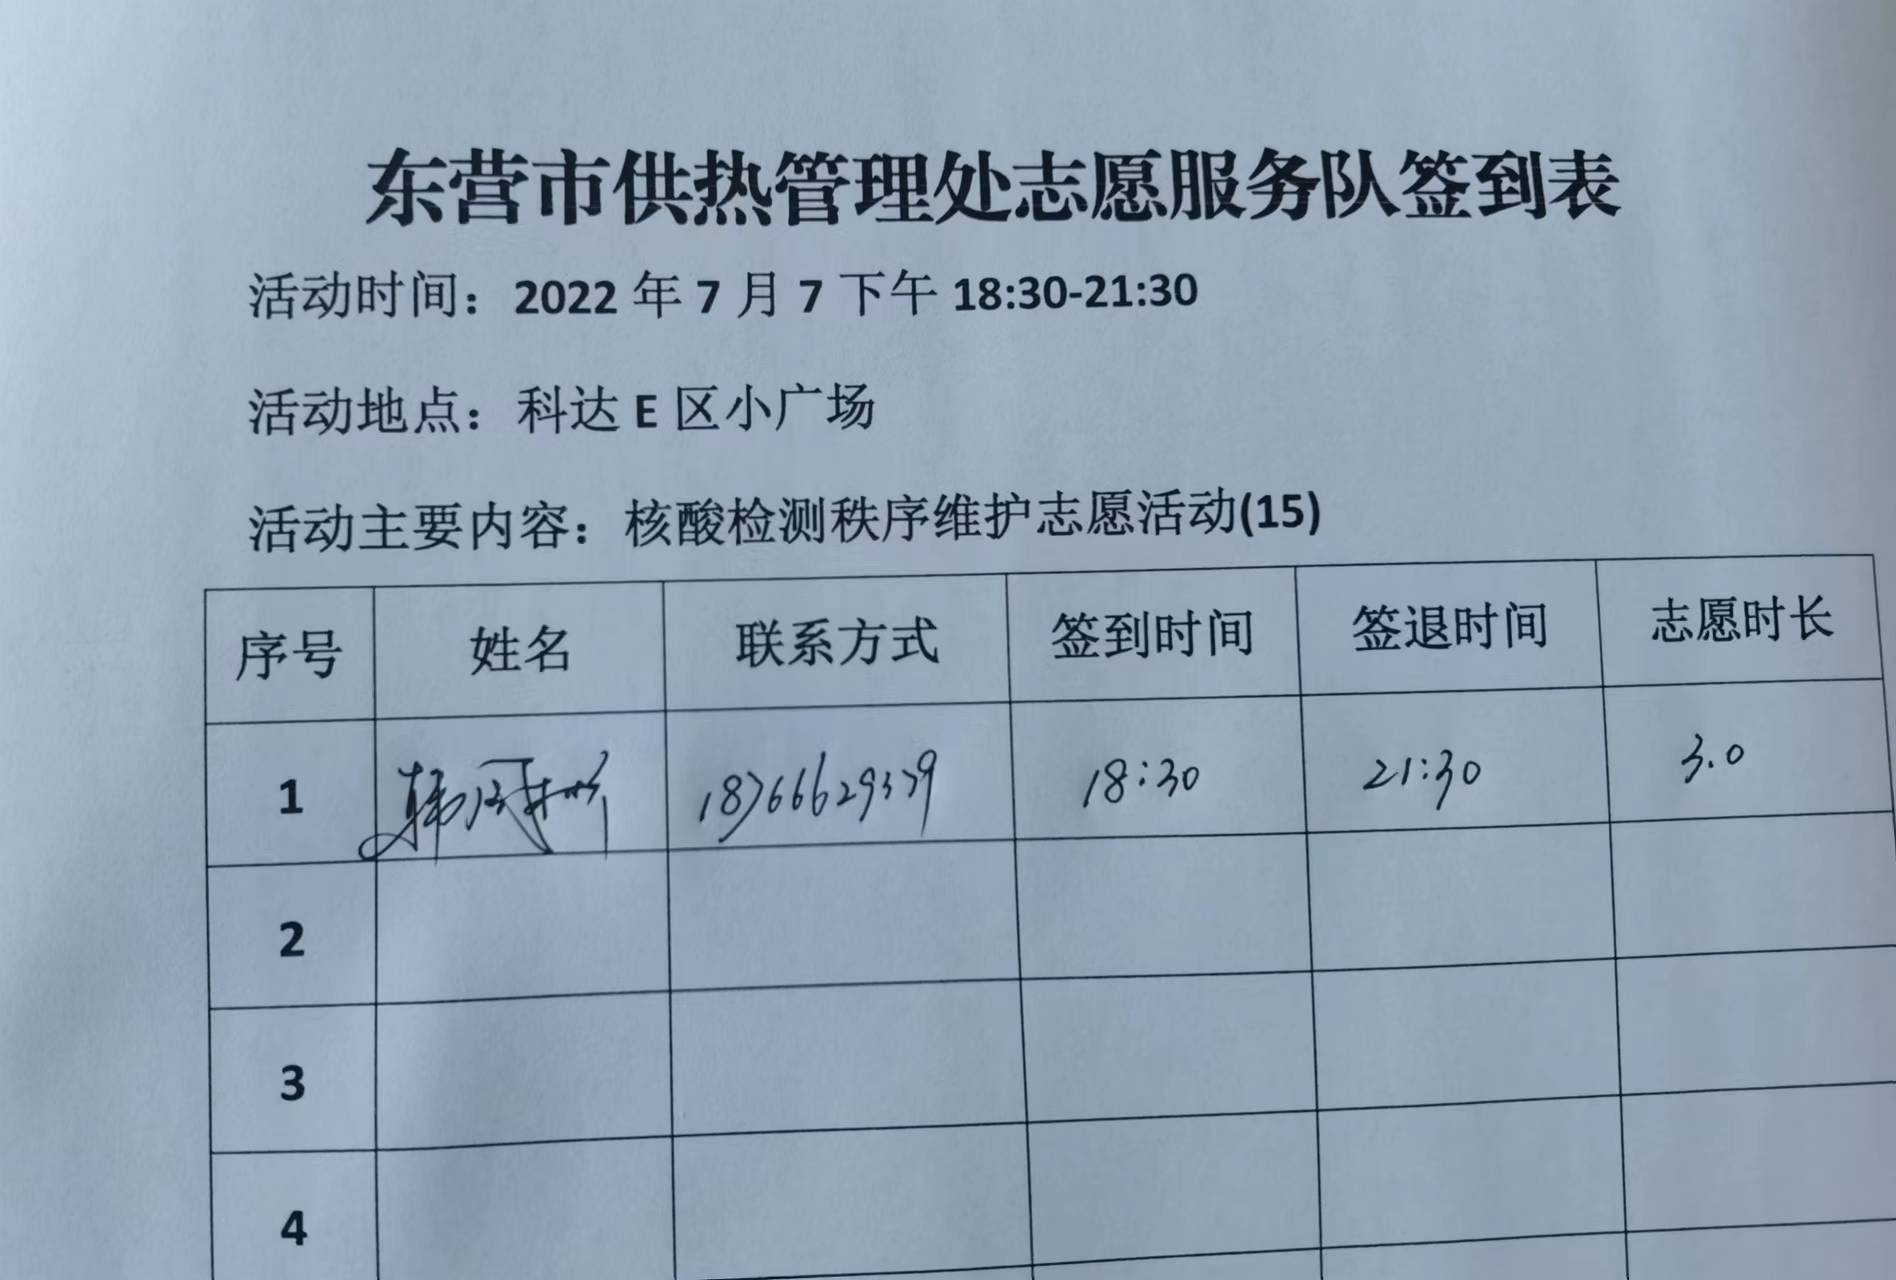 东营市供热管理处志愿服务队签到表
活动时间：2022 年 7 月 7 下午 18:30-21:30
活动地点：科达 E 区小广场
活动主要内容：核酸检测秩序维护志愿活动(15)
序号 姓名 联系方式 签到时间 签退时间 志愿时长
1 韩 18766629339 18:30 21:30 3.0
2
3
4